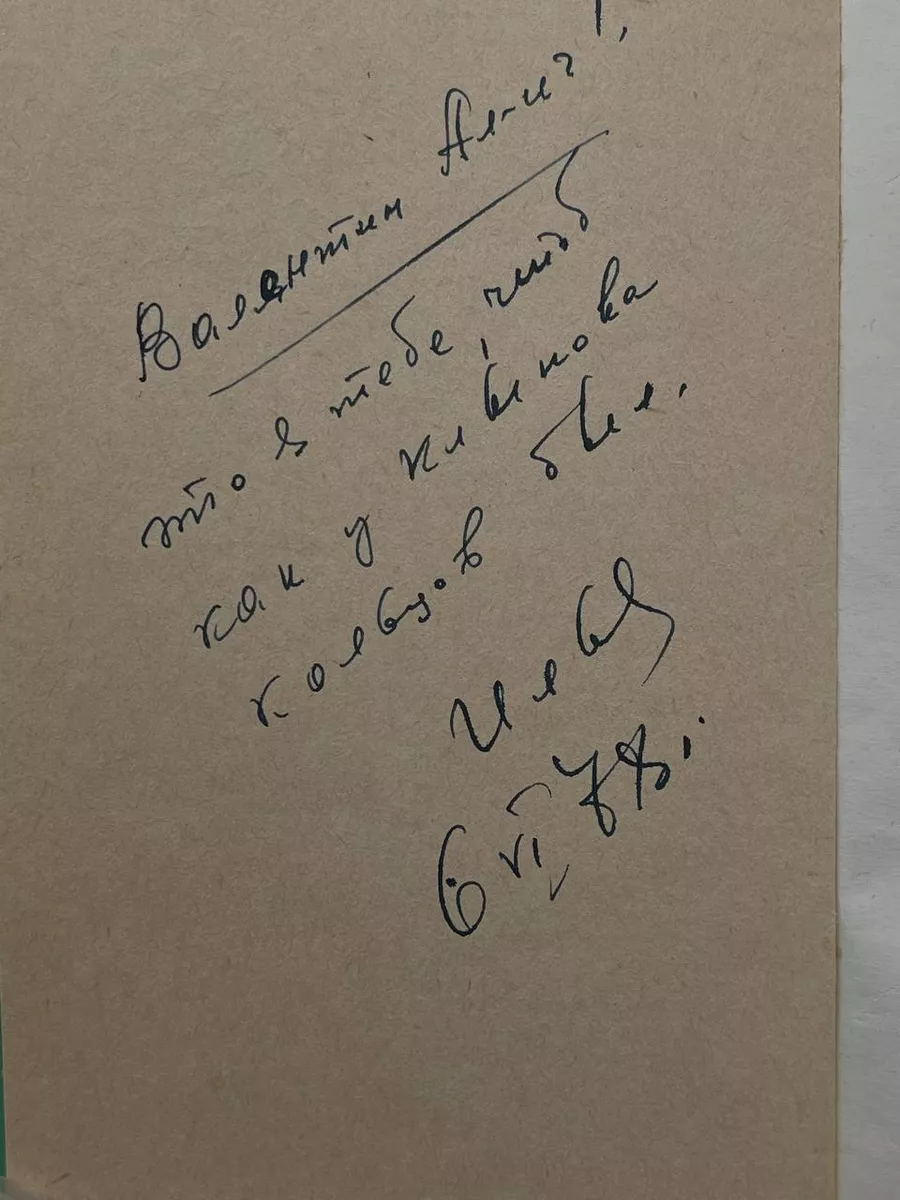 Валентин Ал-ич!
это я тебе, чтоб
как у Клынова
кольцов был.
Илья
6 VI 78.